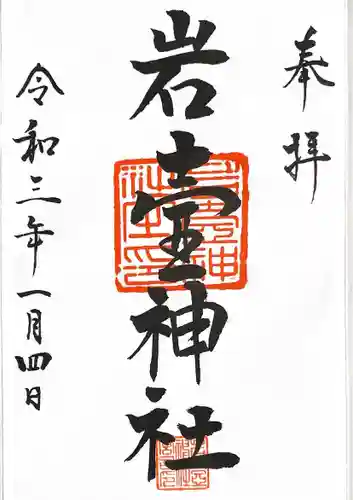 奉拝
岩壺神社
令和三年一月四日